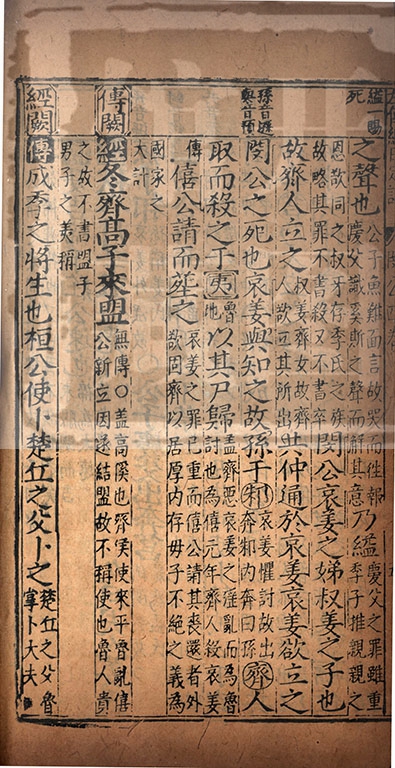 縊賜
死
之聲也公子魚難面言故哭而往報
慶父識奚斯之聲而解其意乃縊慶父之罪雖重
季子推親親之
恩欲同之叔牙存季氏之族
故略其罪不書殺又不書卒閔公哀姜之娣叔姜之子也
故齊人立之叔姜齊女故齊
人欲立其所出共仲通於哀姜哀姜欲立之
孫音遜
與音預
閔公之死也哀姜與知之故孫于邾哀姜懼討故出
奔邾內奔曰孫齊人
取而殺之于夷魯
地以其尸歸蓋齊惡哀姜之淫亂而為魯
討也為僖元年齊人殺哀姜
傳僖公請而葬之哀姜之罪已重而僖公請其喪還者外
欲固齊以居厚内存毋子不絕之義為
國家之
大計
傳闕
經冬齊高子來盟無傳○蓋高傒也齊侯使來平魯亂僖
公新立因遂結盟故不稱使也魯人貴
之故不書盟子
男子之美稱
經闕
傳成季之將生也桓公使卜楚丘之父卜之楚丘之父魯
掌卜大夫